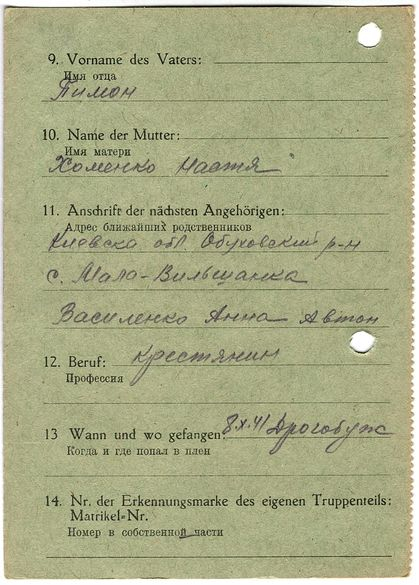 9. Vorname des Vaters:
Имя отца
Пимон
10. Name der Mutter:
Имя матери
Хоменко Настя
11. Anschrift der nächsten Angehörigen:
Адрес ближайших родственников
Киевска обл. Обуховский р-н
с. Мало-Вильшанка
Василенко Анна Автон
12. Beruf: крестянин
Профессия
13 Wann und wo gefangen: 8.X.41 Дрогобуж
Когда и где попал в плен
14. Nr. der Erkennungsmarke des eigenen Truppenteils:
Matrikel-Nr.
Номер в собственной части